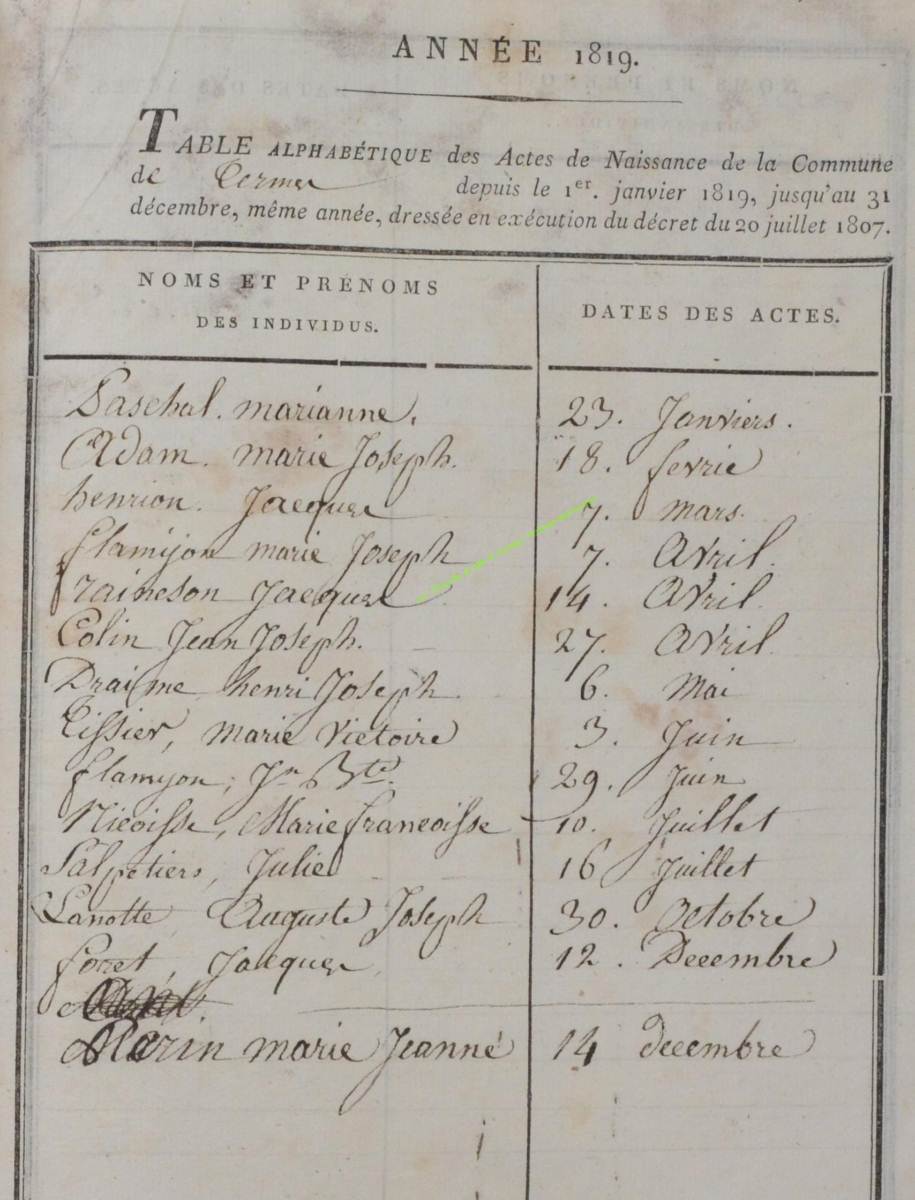 ANNÉE 1819.
TABLE ALPHABÉTIQUE des Actes de Naissance de la Commune
de Cermes depuis le 1er. janvier 1819, jusqu'au 31
décembre, même année, dressée en exécution du décret du 20 juillet 1807.
NOMS ET PRÉNOMS
DES INDIVIDUS.
DATES DES ACTES.
Paschal. marianne. 23. Janviers.
Adam. marie Joseph. 18. fevrie
henrion. Jacques 7. mars.
flamijon marie Joseph 7. Avril.
fraineson Jacques 14. Avril.
Colin Jean Joseph. 27. Avril.
Draime henri Joseph 6. Mai
Tissier, marie Victoire 3. Juin
flamyon, Jn Bte. 29. Juin
Nicoisse, Marie francoisse 10. Juillet
Salpetiers, Julie 16 Juillet
Lanotte Auguste Joseph 30. Octobre
foret, Jacques 12. Decembre
Merin marie Jeanne 14 decembre